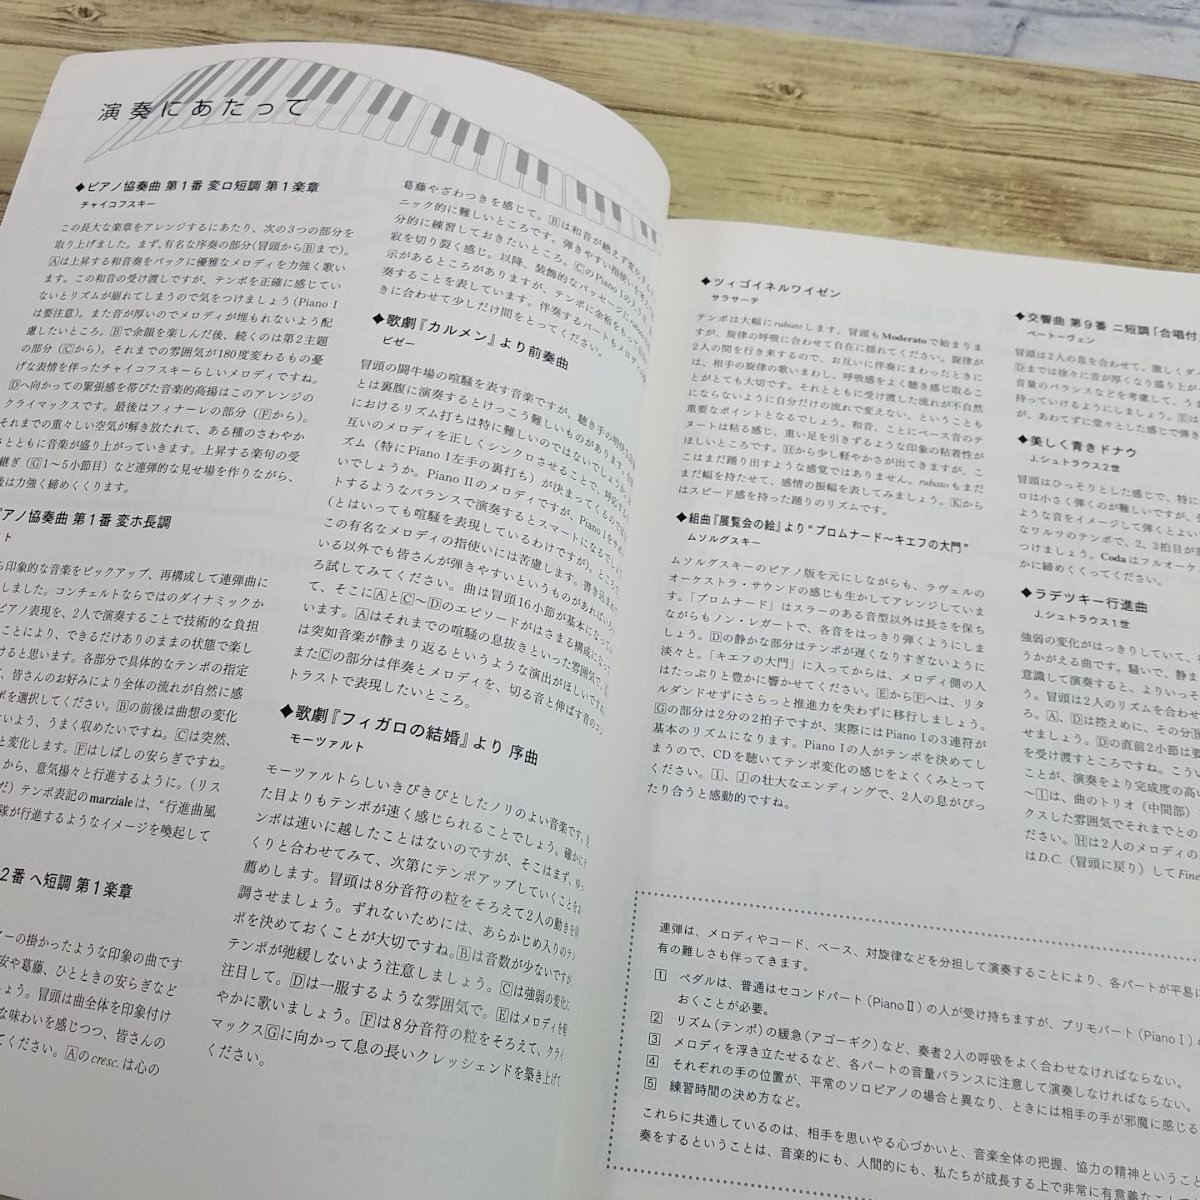 演奏にあたって
◆ピアノ協奏曲 第1番 変ロ短調 第1楽章
チャイコフスキー
この長大な楽章をアレンジするにあたり、次の3つの部分を
取り上げました。まず、有名な序奏の部分(冒頭からBまで)。
Aは上昇する和音奏をバックに優雅なメロディを力強く歌い
ます。この和音の受け渡しですが、テンポを正確に感じてい
ないとリズムが崩れてしまうので気をつけましょう(Piano I
は要注意)。また音が厚いのでメロディが埋もれないよう配
慮したいところ。Bで余韻を楽しんだ後、続くのは第2主題
の部分(Cから)。それまでの雰囲気が180度変わるもの憂
げな表情を伴ったチャイコフスキーらしいメロディですね。
Dへ向かっての緊張感を帯びた音楽的高揚はこのアレンジの
クライマックスです。最後はフィナーレの部分(Fから)。
それまでの重々しい空気が解き放たれて、ある種のさわやか
とともに音楽が盛り上がっていきます。上昇する楽句の受
継ぎ(G1〜5小節目)など連弾的な見せ場を作りながら、
後は力強く締めくくります。
アノ協奏曲 第1番 変ホ長調
スト
ら印象的な音楽をピックアップ、再構成して連弾曲に
しました。コンチェルトならではのダイナミックか
ピアノ表現を、2人で演奏することで技術的な負担
ことにより、できるだけありのままの状態で楽し
けると思います。各部分で具体的なテンポの指定
、皆さんのお好みにより全体の流れが自然に感
ポを選択してください。Bの前後は曲想の変化
いよう、うまく収めたいですね。Cは突然、
と変化します。Fはしばしの安らぎですね。
から、意気揚々と行進するように。(リス
だ)テンポ表記のmarzialeは、“行進曲風
隊が行進するようなイメージを喚起して
2番 ヘ短調 第1楽章
ターの掛かったような印象の曲です
安や葛藤、ひとときの安らぎなど
ょう。冒頭は曲全体を印象付け
な味わいを感じつつ、皆さんの
てください。Aのcresc.は心の
葛藤やざわつきを感じて。Bは和音が絶えず変化する
ニック的に難しいところです。弾きやすい指使いを
分的に練習しておきたいところ。CのPiano Iの入りは
寂を切り裂く感じ。以降、装飾的なパッセージに
示があるところがありますが、テンポに余裕をもって
奏することを表しています。伴奏するパートもメロディの
きに合わせて少しだけ間をとってください。
◆歌劇『カルメン』より前奏曲
ビゼー
冒頭の闘牛場の喧騒を表す音楽ですが、聴き手の
とは裏腹に演奏するとけっこう難しいものがあります。
におけるリズム打ちは特に難しいのではないでしょうか。
互いのメロディを正しくシンクロさせることで、
ズム(特にPiano I左手の裏打ち)が決まってくるのでは
いでしょうか。Piano IIのメロディですが、Piano Iを
トするようなバランスで演奏するとスマートになるでしょう
(とはいっても喧騒を表現しているわけですが)。ところで
この有名なメロディの指使いには苦慮します。書き込まれて
いる以外でも皆さんが弾きやすいというものがあればいろい
ろ試してみてください。曲は冒頭16小節が基本になって
て、そこにAとC〜Dのエピソードがはさまる構成になって
います。Aはそれまでの喧騒の息抜きといった雰囲気で、
は突如音楽が静まり返るというような演出がほしいですね。
またCの部分は伴奏とメロディを、切る音と伸ばす音のコン
トラストで表現したいところ。
◆歌劇『フィガロの結婚』より 序曲
モーツァルト
モーツァルトらしいきびきびとしたノリのよい音楽です。見
た目よりもテンポが速く感じられることでしょう。確かにテ
ンポは速いに越したことはないのですが、そこはまず、ゆっ
くりと合わせてみて、次第にテンポアップしていくことをお
薦めします。冒頭は8分音符の粒をそろえて2人の動きを同
調させましょう。ずれないためには、あらかじめ入りのテン
ポを決めておくことが大切ですね。Bは音数が少ないですが、
テンポが弛緩しないよう注意しましょう。Cは強弱の変化に
注目して。Dは一服するような雰囲気で。Eはメロディを軽
やかに歌いましょう。Fは8分音符の粒をそろえて、クライ
マックスGに向かって息の長いクレッシェンドを築き上げて
ください。
◆ツィゴイネルワイゼン
サラサーテ
テンポは大幅にrubatoします。冒頭もModeratoで始まりま
すが、旋律の呼吸に合わせて自在に揺れてください。旋律が
2人の間を行き来するので、お互いに伴奏にまわったときに
は、相手の旋律の歌いまわし、呼吸感をよく聴き感じ取るこ
とがとても大切です。それとともに受け渡した流れが不自然
にならないように自分だけの流れで変えない、ということも
重要なポイントとなるでしょう。和音、ことにベース音のテ
ヌートは粘る感じ、重い足を引きずるような印象の粘着性が
ほしいところです。Hから少し軽やかさが出てきますが、こ
こはまだ踊り出すような感覚ではありません。rubatoもまだ
まだ幅を持たせて、感情の振幅を表してみましょう。Kから
はスピード感を持った踊りのリズムです。
◆組曲『展覧会の絵』より“プロムナード〜キエフの大門”
ムソルグスキー
ムソルグスキーのピアノ版を元にしながらも、ラヴェルの
オーケストラ・サウンドの感じも生かしてアレンジしていま
す。「プロムナード」はスラーのある音型以外は長さを保ち
ながらもノン・レガートで、各音をはっきり弾くようにしま
しょう。Dの静かな部分はテンポが遅くなりすぎないように
淡々と。「キエフの大門」に入ってからは、メロディ側の人
はたっぷりと豊かに響かせてください。EからFへは、リタ
ルダンドせずにさらっと推進力を失わずに移行しましょう。
Gの部分は2分の2拍子ですが、実際にはPiano Iの3連符が
基本のリズムになります。Piano Iの人がテンポを決めてし
まうので、CDを聴いてテンポ変化の感じをよくくみとって
ください。I、Jの壮大なエンディングで、2人の息がぴっ
たり合うと感動的ですね。
◆交響曲 第9番 ニ短調「合唱付
ベートーヴェン
冒頭は2人の息を合わせて、激しくダイ
Dまでは徐々に音が厚くなり盛り上が
音量のバランスなどを考慮して、うま
持っていけるようにしましょう。Eは
が、あわてずに堂々とした感じで弾き
◆美しく青きドナウ
J.シュトラウス2世
冒頭はひっそりとした感じで、特に
ロは小さく弾くのが難しいですが、そ
ような音をイメージして弾くとよい
なワルツのテンポで、2、3拍目が重
つけましょう。Codaはフルオーケ
かに締めくくってください。
◆ラデツキー行進曲
J.シュトラウス1世
強弱の変化がはっきりしていて、各
うかがえる曲です。騒いで、静ま
意識して演奏すると、よりいっそ
う。冒頭は2人のリズムを合わせ
ろ。A、Dは控えめに、その分B
せましょう。Dの直前2小節は要
を受け渡すところですね。こうい
ことが、演奏をより完成度の高い
〜Iは、曲のトリオ(中間部)
クスした雰囲気でそれまでとの
ださい。Hは2人のメロディの
はD.C.(冒頭に戻り)してFine
連弾は、メロディやコード、ベース、対旋律などを分担して演奏することにより、各パートが平易に
有の難しさも伴ってきます。
1 ペダルは、普通はセコンドパート(Piano II)の人が受け持ちますが、プリモパート(Piano I)の
おくことが必要。
2 リズム(テンポ)の緩急(アゴーギク)など、奏者2人の呼吸をよく合わせなければならない。
3 メロディを浮き立たせるなど、各パートの音量バランスに注意して演奏しなければならない。
4 それぞれの手の位置が、平常のソロピアノの場合と異なり、ときには相手の手が邪魔に感じる
5 練習時間の決め方など。
これらに共通しているのは、相手を思いやる心づかいと、音楽全体の把握、協力の精神ということ
奏をするということは、音楽的にも、人間的にも、私たちが成長する上で非常に有意義なこと